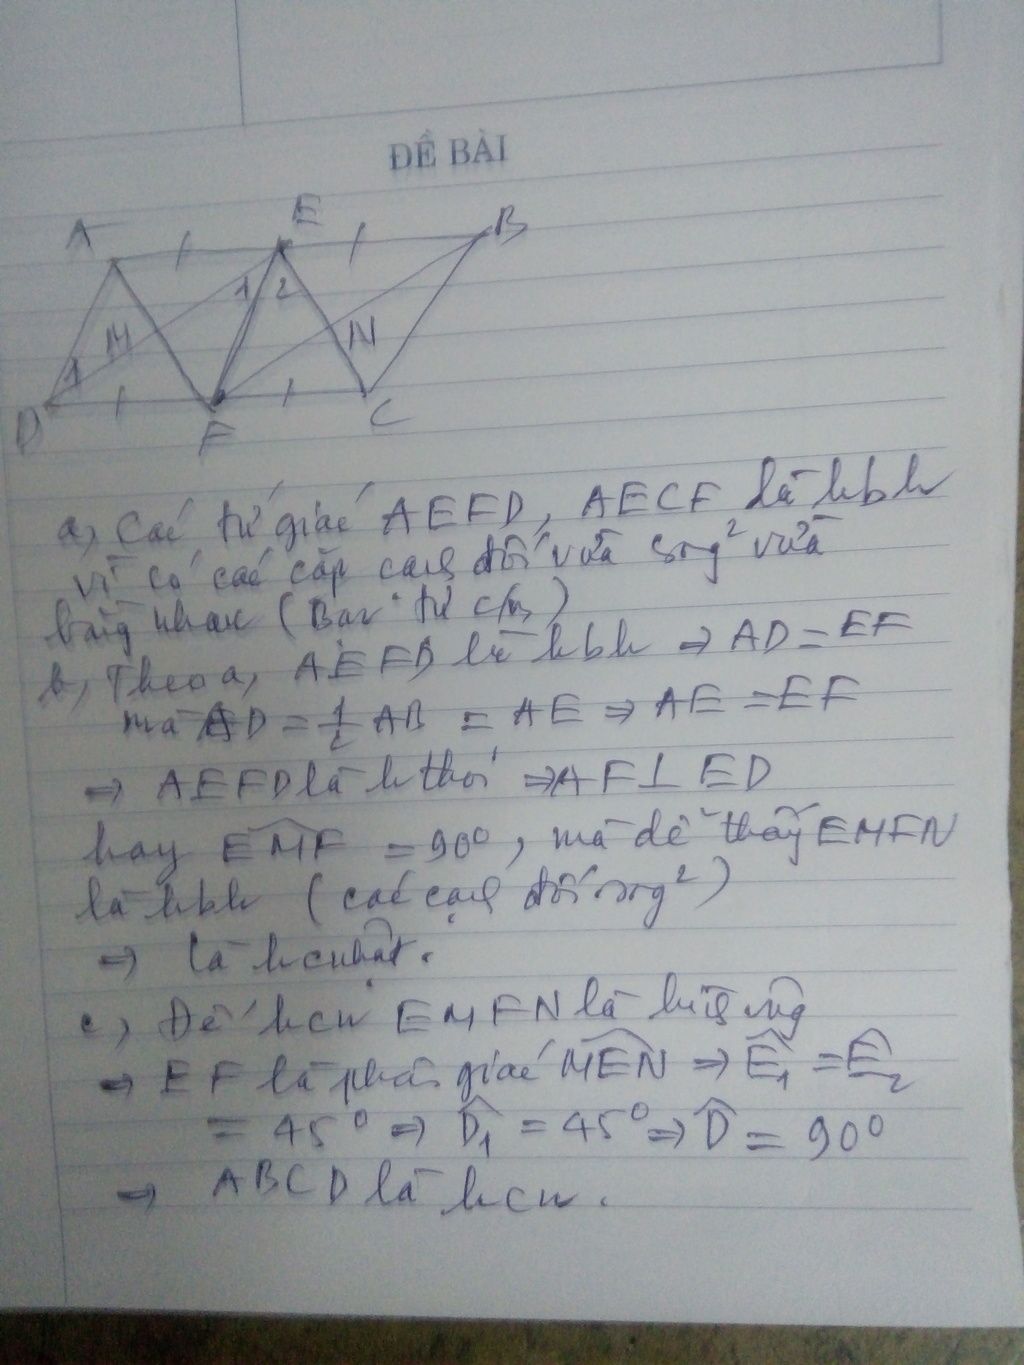 ĐỀ BÀI
A E B
1 2
M N
1
D F C
a, Các tứ giác AEFD, AECF là hbh
vì có các cặp cạnh đối vừa song² vừa
bằng nhau (Bạn tự c/m)
b, Theo a, AEFD là hbh ⇒ AD = EF
mà AD = 1/2 AB = AE ⇒ AE = EF
⇒ AEFD là h thoi ⇒ AF ⊥ ED
hay EMF = 90°, mà dễ thấy EMFN
là hbh (các cạnh đối song²)
⇒ là hcnhật.
c, Để hcn EMFN là hv
⇒ EF là phân giác MEN ⇒ Ê₁ = Ê₂
= 45° ⇒ D̂₁ = 45° ⇒ D̂ = 90°
⇒ ABCD là hcn.